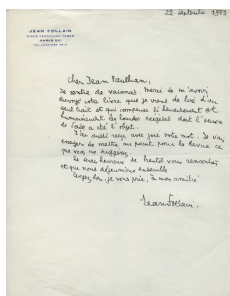 22 Septembre 1953
JEAN FOLLAIN
PARIS
Cher Jean Paulhan,
Je rentre de vacances merci de m'avoir
envoyé votre livre que je viens de lire d'un
seul trait et qui compense si heureusement et
les lourdes exégèses dont l'œuvre
de Sade a été l'objet.
J'ai aussi reçu avec joie votre mot. Je vais
essayer de mettre au point pour la Revue ce
que vous me suggérez.
Je serai heureux de vous rencontrer
et que nous déjeunions ensemble.
Croyez bien, je vous prie, à mon amitié
Jean Follain.